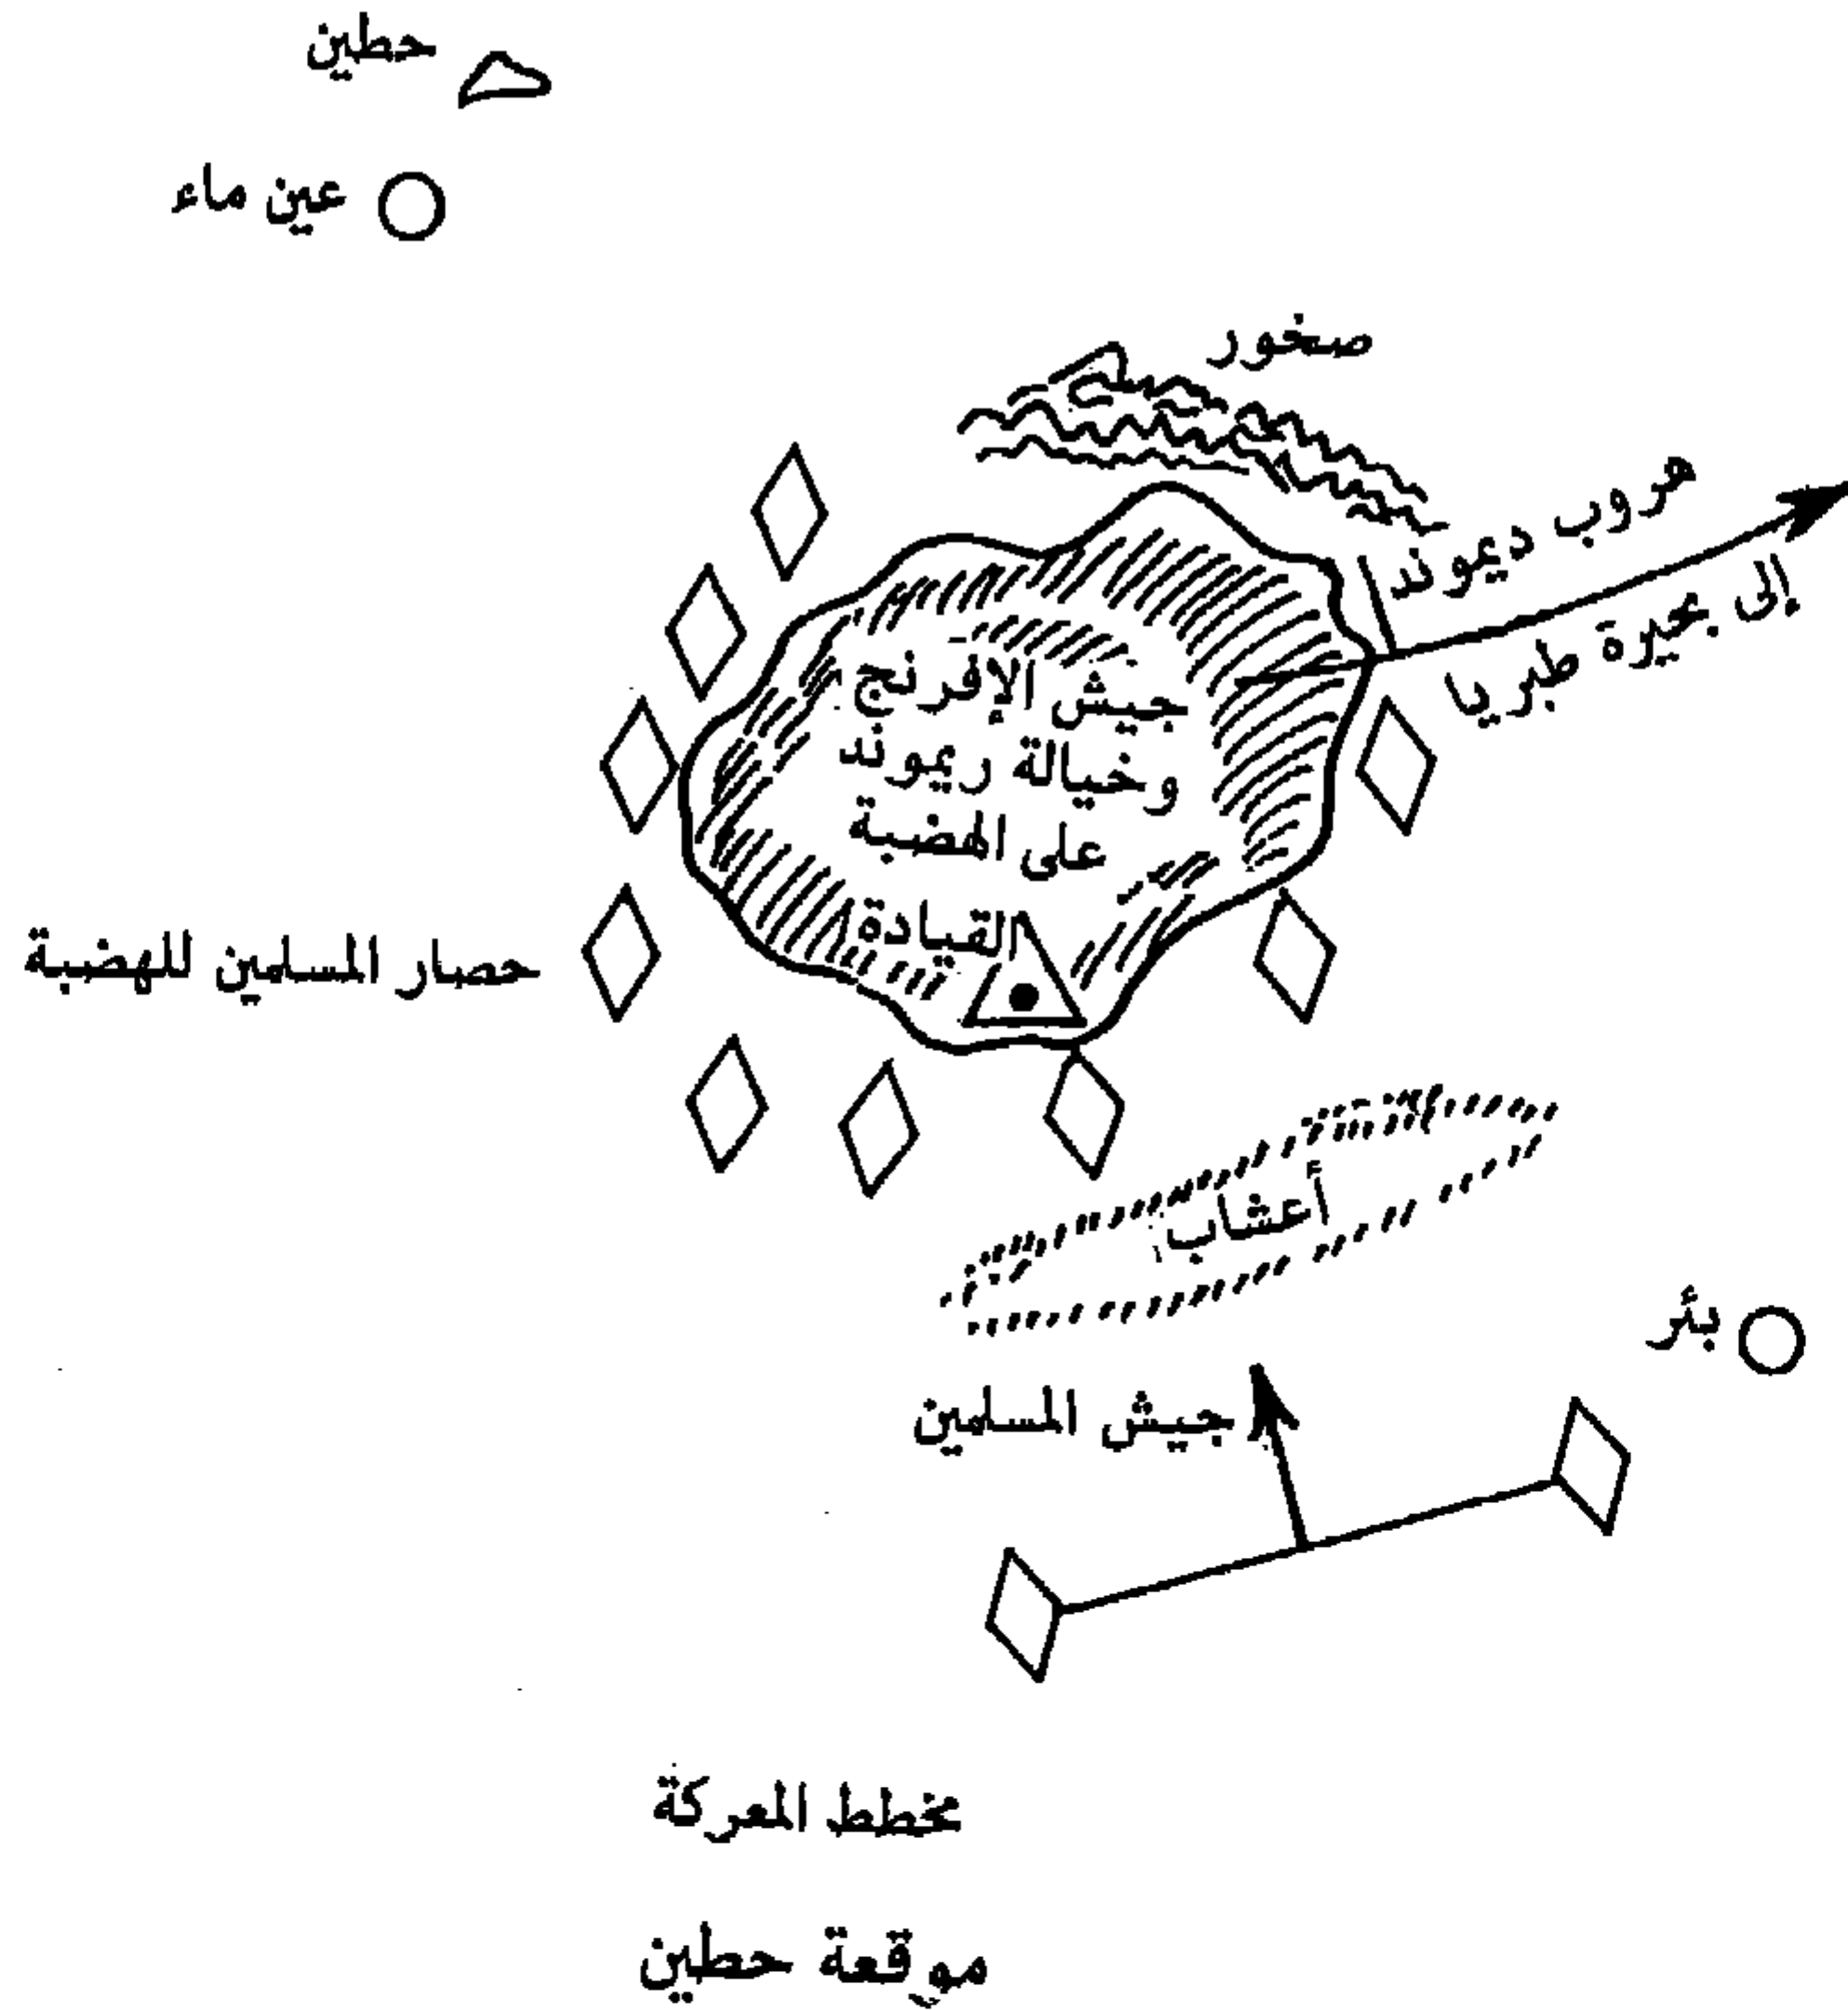 حطين
عين ماء
صخور
هروب ديموند
إلى بحيرة طبريا
جيش الإفرنج
وخيالة ريموند
على الهضبة
القيادة
حصار المسلمين للهضبة
أعشاب
بئر
جيش المسلمين
مخطط المعركة
موقعة حطين